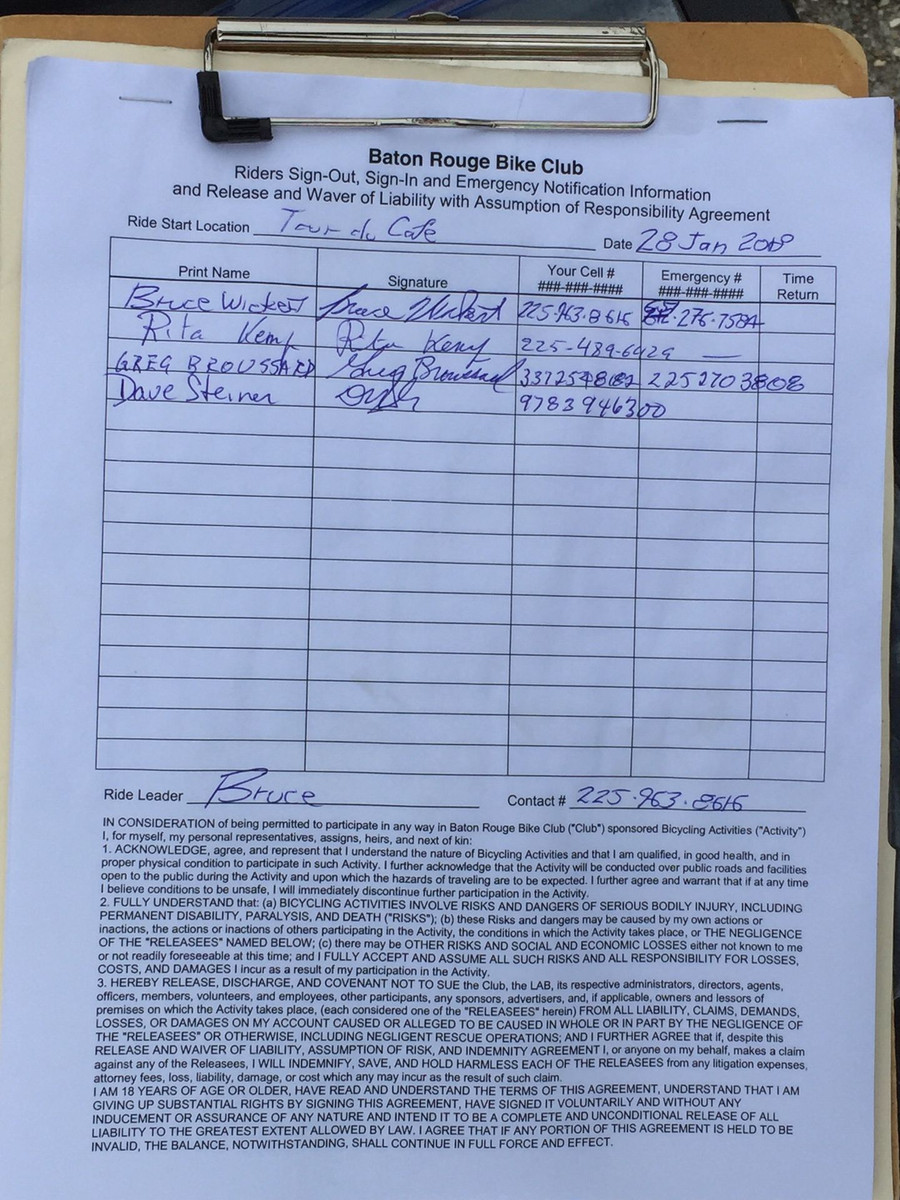 Baton Rouge Bike Club
Riders Sign-Out, Sign-In and Emergency Notification Information
and Release and Waiver of Liability with Assumption of Responsibility Agreement
Ride Start Location Tour du Cafe Date 28 Jan 2018
Print Name Signature Your Cell # ###-###-#### Emergency # ###-###-#### Time Return
Bruce Wickert Bruce Wickert 225-963-8616 276-7584
Rita Kemp Rita Kemp 225-489-6929 —
GREG BROUSSARD Greg Broussard 2252703808
Dave Steiner 9783946300
Ride Leader Bruce Contact # 225.963.8616
IN CONSIDERATION of being permitted to participate in any way in Baton Rouge Bike Club ("Club") sponsored Bicycling Activities ("Activity")
I, for myself, my personal representatives, assigns, heirs, and next of kin:
1. ACKNOWLEDGE, agree, and represent that I understand the nature of Bicycling Activities and that I am qualified, in good health, and in
proper physical condition to participate in such Activity. I further acknowledge that the Activity will be conducted over public roads and facilities
open to the public during the Activity and upon which the hazards of traveling are to be expected. I further agree and warrant that if at any time
I believe conditions to be unsafe, I will immediately discontinue further participation in the Activity.
2. FULLY UNDERSTAND that: (a) BICYCLING ACTIVITIES INVOLVE RISKS AND DANGERS OF SERIOUS BODILY INJURY, INCLUDING
PERMANENT DISABILITY, PARALYSIS, AND DEATH ("RISKS"); (b) these Risks and dangers may be caused by my own actions or
inactions, the actions or inactions of others participating in the Activity, the conditions in which the Activity takes place, or THE NEGLIGENCE
OF THE "RELEASEES" NAMED BELOW; (c) there may be OTHER RISKS AND SOCIAL AND ECONOMIC LOSSES either not known to me
or not readily foreseeable at this time; and I FULLY ACCEPT AND ASSUME ALL SUCH RISKS AND ALL RESPONSIBILITY FOR LOSSES,
COSTS, AND DAMAGES I incur as a result of my participation in the Activity.
3. HEREBY RELEASE, DISCHARGE, AND COVENANT NOT TO SUE the Club, the LAB, its respective administrators, directors, agents,
officers, members, volunteers, and employees, other participants, any sponsors, advertisers, and, if applicable, owners and lessors of
premises on which the Activity takes place, (each considered one of the "RELEASEES" herein) FROM ALL LIABILITY, CLAIMS, DEMANDS,
LOSSES, OR DAMAGES ON MY ACCOUNT CAUSED OR ALLEGED TO BE CAUSED IN WHOLE OR IN PART BY THE NEGLIGENCE OF
THE "RELEASEES" OR OTHERWISE, INCLUDING NEGLIGENT RESCUE OPERATIONS; AND I FURTHER AGREE that if, despite this
RELEASE AND WAIVER OF LIABILITY, ASSUMPTION OF RISK, AND INDEMNITY AGREEMENT I, or anyone on my behalf, makes a claim
against any of the Releasees, I WILL INDEMNIFY, SAVE, AND HOLD HARMLESS EACH OF THE RELEASEES from any litigation expenses,
attorney fees, loss, liability, damage, or cost which any may incur as the result of such claim.
I AM 18 YEARS OF AGE OR OLDER, HAVE READ AND UNDERSTAND THE TERMS OF THIS AGREEMENT, UNDERSTAND THAT I AM
GIVING UP SUBSTANTIAL RIGHTS BY SIGNING THIS AGREEMENT, HAVE SIGNED IT VOLUNTARILY AND WITHOUT ANY
INDUCEMENT OR ASSURANCE OF ANY NATURE AND INTEND IT TO BE A COMPLETE AND UNCONDITIONAL RELEASE OF ALL
LIABILITY TO THE GREATEST EXTENT ALLOWED BY LAW. I AGREE THAT IF ANY PORTION OF THIS AGREEMENT IS HELD TO BE
INVALID, THE BALANCE, NOTWITHSTANDING, SHALL CONTINUE IN FULL FORCE AND EFFECT.